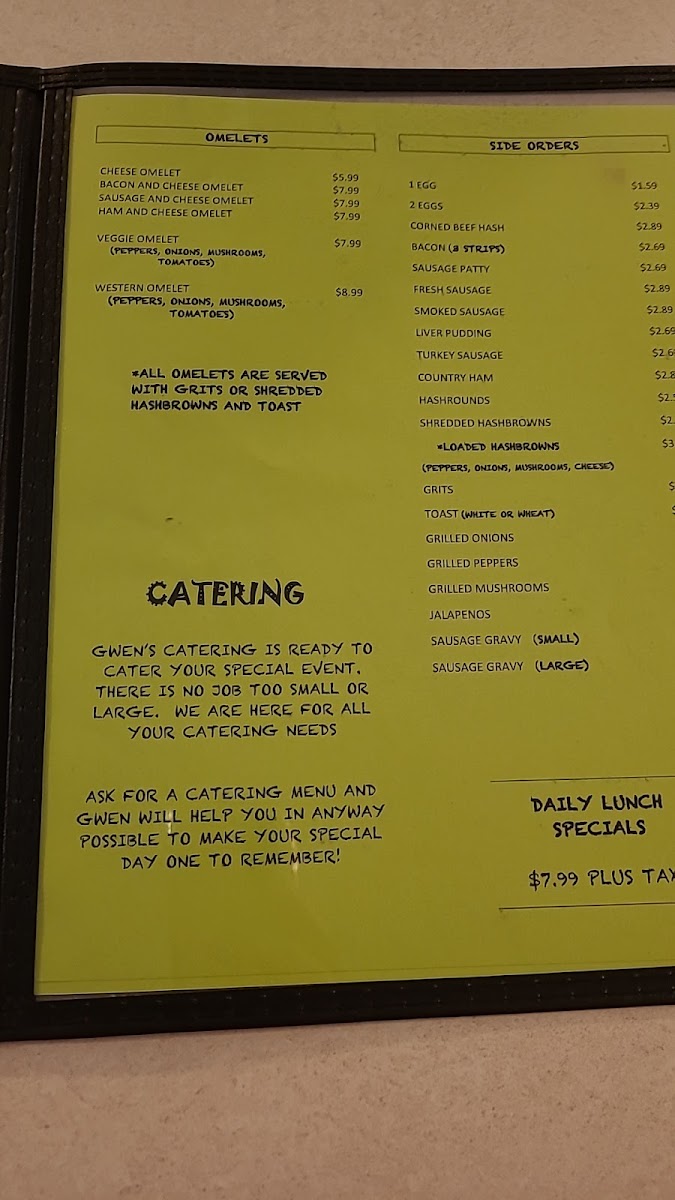 OMELETS
CHEESE OMELET $5.99
BACON AND CHEESE OMELET $7.99
SAUSAGE AND CHEESE OMELET $7.99
HAM AND CHEESE OMELET $7.99
VEGGIE OMELET $7.99
(PEPPERS, ONIONS, MUSHROOMS,
TOMATOES)
WESTERN OMELET $8.99
(PEPPERS, ONIONS, MUSHROOMS,
TOMATOES)
*ALL OMELETS ARE SERVED
WITH GRITS OR SHREDDED
HASHBROWNS AND TOAST
CATERING
GWEN'S CATERING IS READY TO
CATER YOUR SPECIAL EVENT.
THERE IS NO JOB TOO SMALL OR
LARGE. WE ARE HERE FOR ALL
YOUR CATERING NEEDS
ASK FOR A CATERING MENU AND
GWEN WILL HELP YOU IN ANYWAY
POSSIBLE TO MAKE YOUR SPECIAL
DAY ONE TO REMEMBER!
SIDE ORDERS
1 EGG $1.59
2 EGGS $2.39
CORNED BEEF HASH $2.89
BACON (3 STRIPS) $2.69
SAUSAGE PATTY $2.69
FRESH SAUSAGE $2.89
SMOKED SAUSAGE $2.89
LIVER PUDDING $2.69
TURKEY SAUSAGE $2.6
COUNTRY HAM $2.8
HASHROUNDS $2.
SHREDDED HASHBROWNS $2.
*LOADED HASHBROWNS $3
(PEPPERS, ONIONS, MUSHROOMS, CHEESE)
GRITS $
TOAST (WHITE OR WHEAT)
GRILLED ONIONS
GRILLED PEPPERS
GRILLED MUSHROOMS
JALAPENOS
SAUSAGE GRAVY (SMALL)
SAUSAGE GRAVY (LARGE)
DAILY LUNCH
SPECIALS
$7.99 PLUS TAX